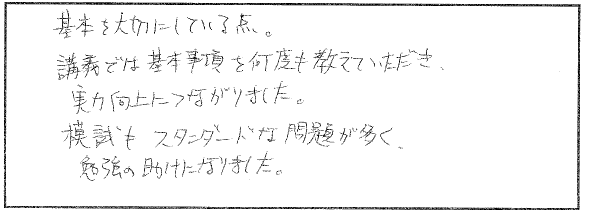 基本を大切にしている点。
講義では基本事項を何度も教えていただき、
実力向上につながりました。
模試もスタンダードな問題が多く、
勉強の助けになりました。